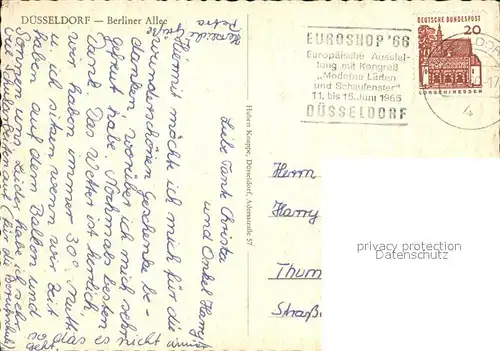 DÜSSELDORF — Berliner Allee
Liebe Tante Christa
und Onkel Harry!
Hiermit möchte ich mich für die
wunderschönen Geschenke be-
danken, worüber ich mich sehr
gefreut habe. Nochmals besten
Dank. Das Wetter ist herrlich,
wir haben immer 30°. Mutti
u. ich sitzen wenn wir Zeit
haben auf dem Balkon und
Sonnen uns. Leider habe ich sehr
viel Schularbeiten auf (für die Berufsschule)
so das es nicht immer
geht.
Herzliche Grüße
Petra
Hubert Knappe, Düsseldorf, Adersstraße 57
EUROSHOP '66
Europäische Ausstel-
lung mit Kongreß
„Moderne Läden
und Schaufenster"
11. bis 15. Juni 1966
DÜSSELDORF
DEUTSCHE BUNDESPOST
20
LORSCH/HESSEN
Herrn
Harry
Thum
Straß
privacy protection
Datenschutz